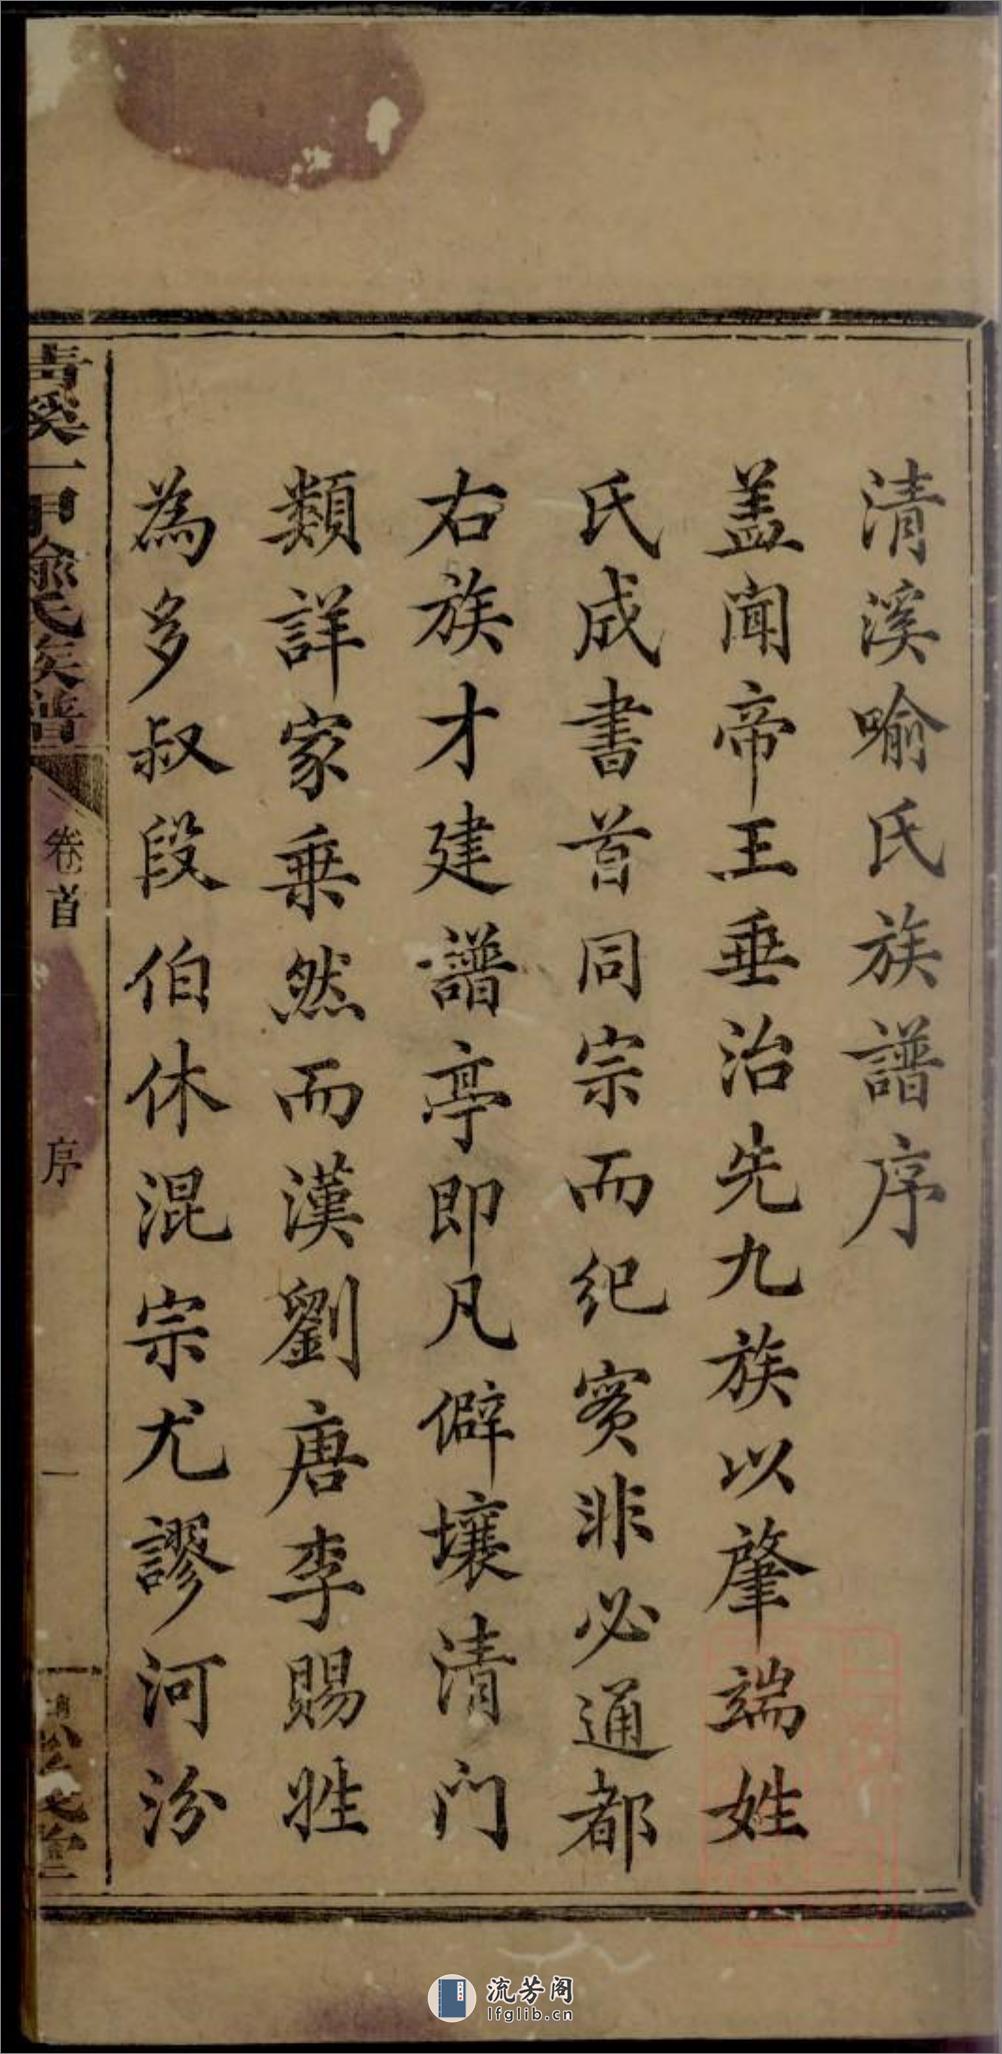 清溪喻氏族譜序
盖聞帝王垂治先九族以肇端姓
氏成書首同宗而纪賓非必通都
右族才建譜亭即凡僻壤清门
類詳家乗然而漢劉唐李賜姓
為多叔段伯休混宗尤謬河汾
青溪一甲喻氏族譜
卷首
序
一
流芳阁
lfglib.cn